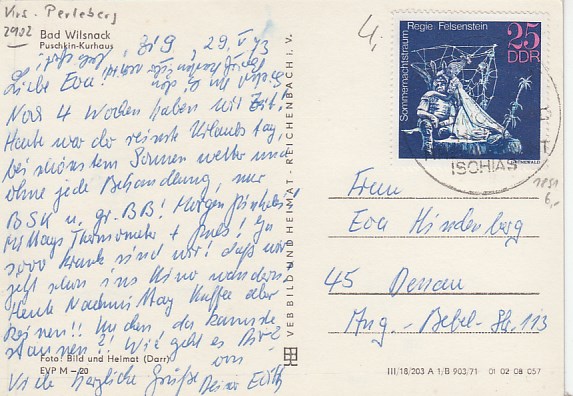 Krs. Perleberg
2902
Bad Wilsnack
Puschkin-Kurhaus
29. V 73
Liebe Eva!
Noch 4 Wochen haben wir Zeit,
Heute war der reinste Urlaubstag,
bei schönstem Sonnenwetter und
ohne jede Behandlung, nur
BSK u. gr. BB! Morgen
Mittags Thermometer + Puls! So
krank sind wir! daß wir
jetzt schon ins Kino wandern
Heute Nachmittag Kaffee aber
keinen!! Kuchen da kannste
staunen?! Wie geht es
Foto: Bild und Heimat (Darr)
EVP M –20
Viele herzliche Grüße von Deiner Edith
VEB BILD UND HEIMAT · REICHENBACH i. V.
4,
Sommernachtstraum Regie: Felsenstein
25
DDR
ISCHIAS
6,-
Frau
Eva Hindenberg
45 Dessau
Aug.-Bebel-Str. 113
III/18/203 A 1/B 903/71 01 02 08 057